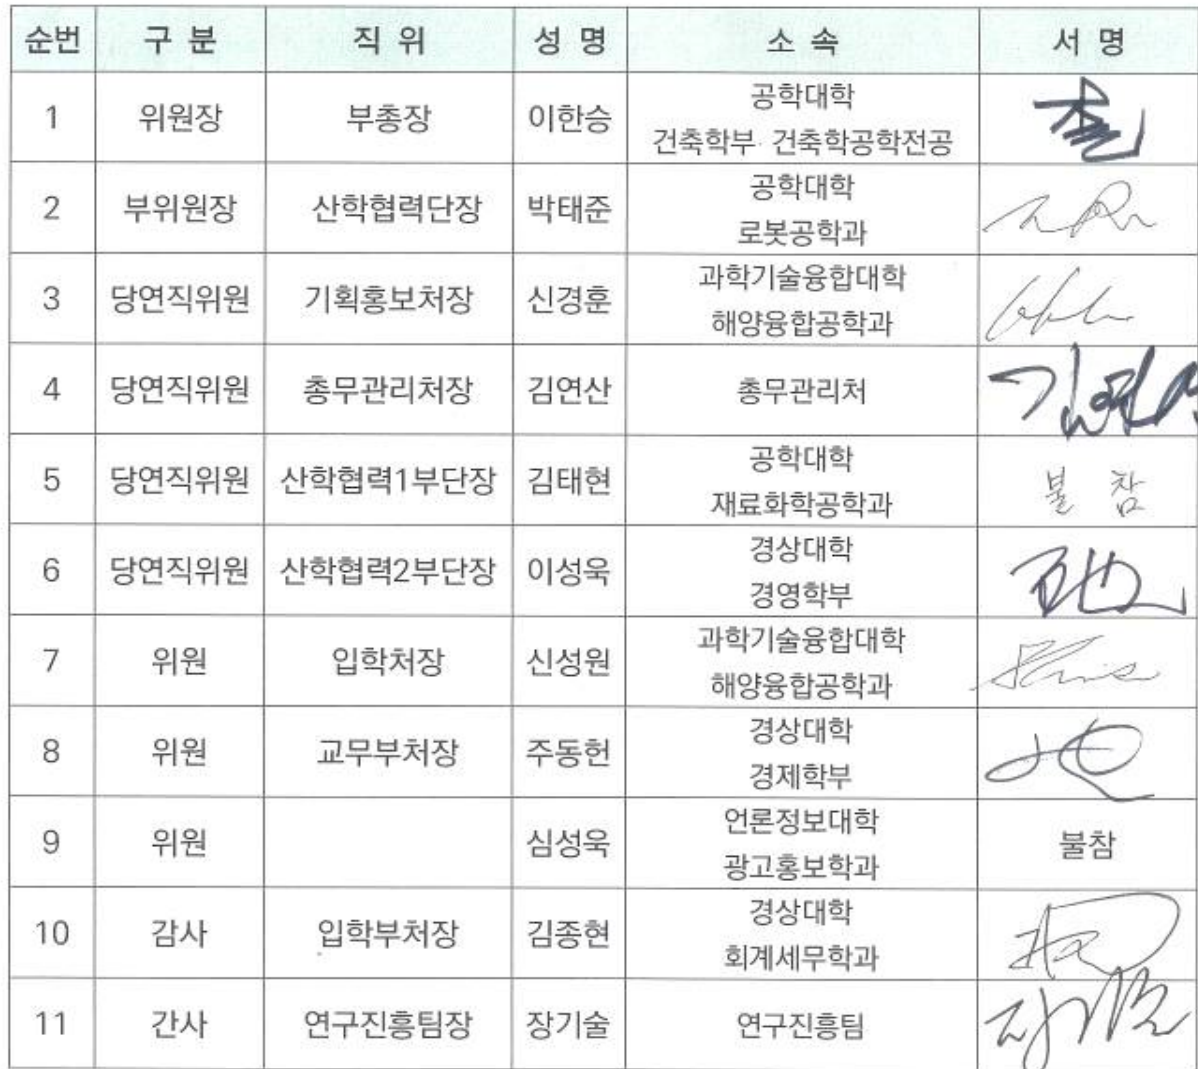 순번 구 분 직 위 성 명 소 속 서 명
1 위원장 부총장 이한승 공학대학
건축학부 건축학공학전공
2 부위원장 산학협력단장 박태준 공학대학
로봇공학과
3 당연직위원 기획홍보처장 신경훈 과학기술융합대학
해양융합공학과
4 당연직위원 총무관리처장 김연산 총무관리처
5 당연직위원 산학협력1부단장 김태현 공학대학 불 참
재료화학공학과
6 당연직위원 산학협력2부단장 이성욱 경상대학
경영학부
7 위원 입학처장 신성원 과학기술융합대학
해양융합공학과
8 위원 교무부처장 주동헌 경상대학
경제학부
9 위원 심성욱 언론정보대학 불참
광고홍보학과
10 감사 입학부처장 김종현 경상대학
회계세무학과
11 간사 연구진흥팀장 장기술 연구진흥팀